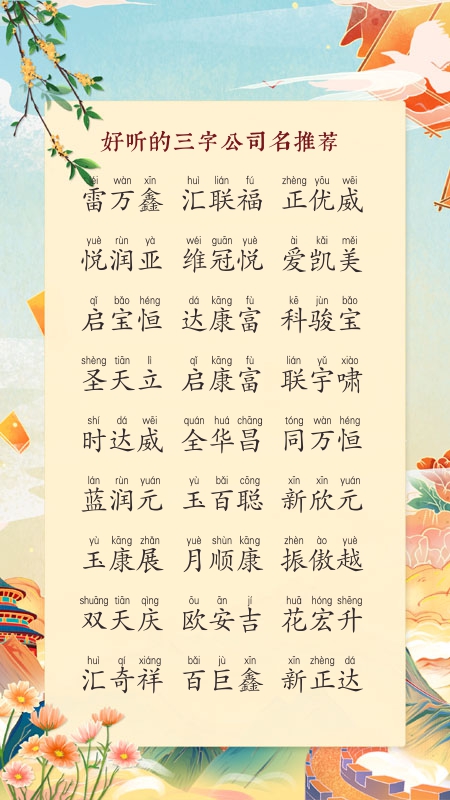 好听的三字公司名推荐
léi wàn xīn huì lián fú zhèng yōu wēi
雷万鑫 汇联福 正优威
yuè rùn yà wéi guān yuè ài kǎi měi
悦润亚 维冠悦 爱凯美
qǐ bǎo héng dá kāng fù kē jùn bǎo
启宝恒 达康富 科骏宝
shèng tiān lì qǐ kāng fù lián yǔ xiào
圣天立 启康富 联宇啸
shí dá wēi quán huá chāng tóng wàn héng
时达威 全华昌 同万恒
lán rùn yuán yù bǎi cōng xīn xīn yuán
蓝润元 玉百聪 新欣元
yù kāng zhǎn yuè shùn kāng zhèn ào yuè
玉康展 月顺康 振傲越
shuāng tiān qìng ōu ān jí huā hóng shēng
双天庆 欧安吉 花宏升
huì qí xiáng bǎi jù xīn xīn zhèng dá
汇奇祥 百巨鑫 新正达